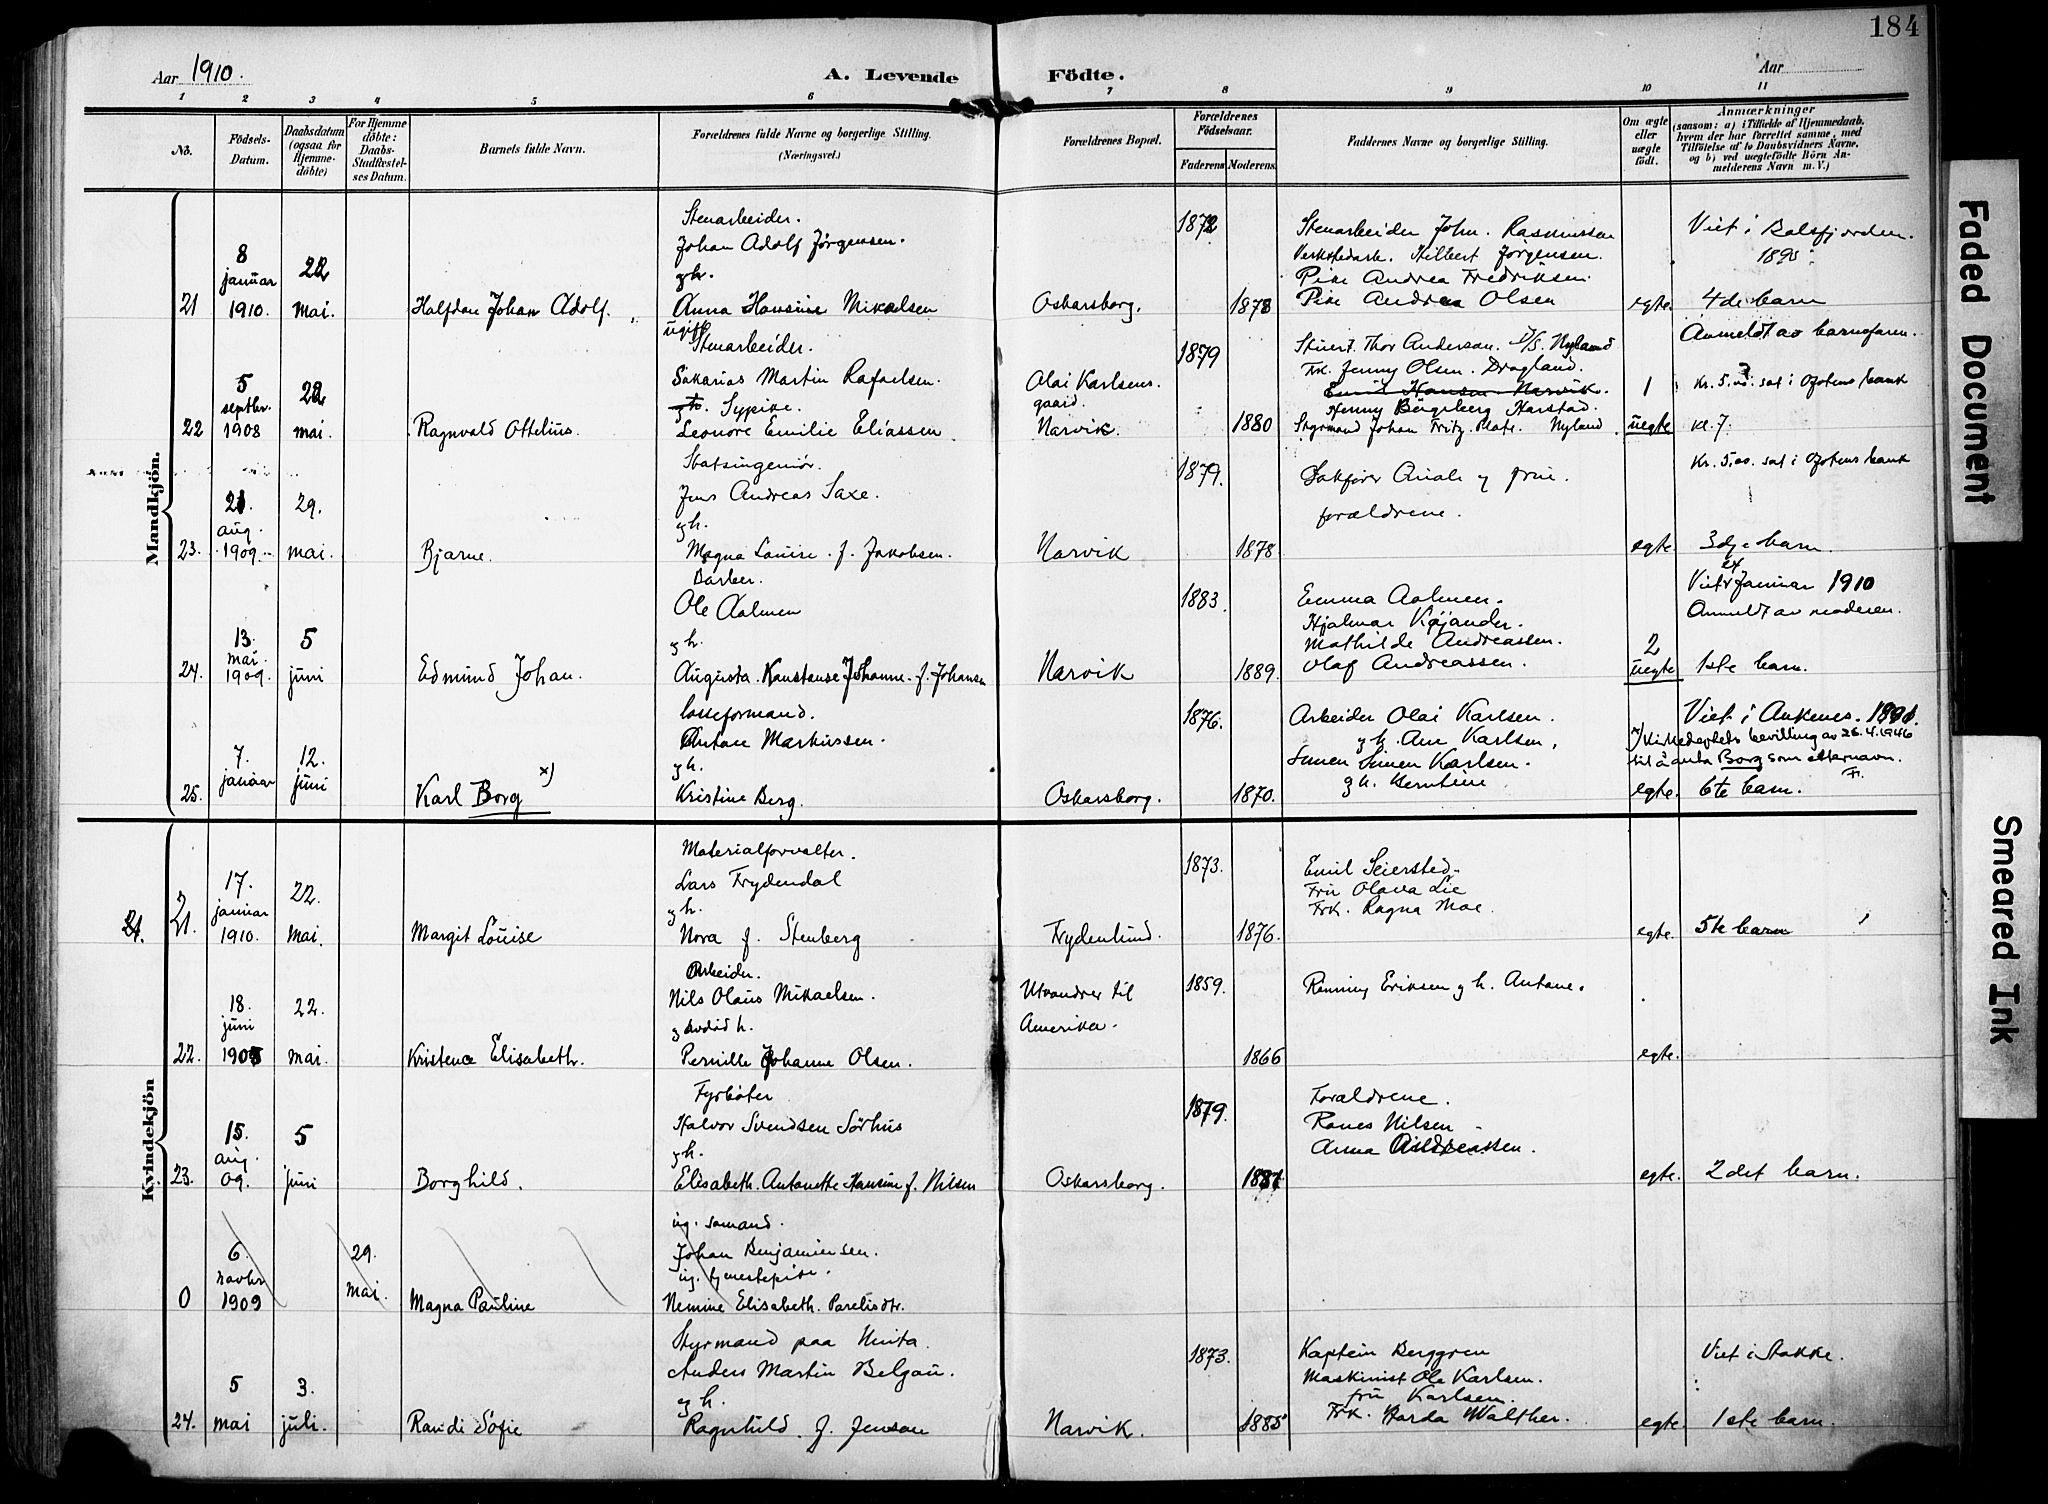 184
Aar 1910.
A. Levende Födte.
Aar
1 2 3 4 5 6 7 8 9 10 11
No.
Födsels-
Datum.
Daabsdatum
(ogsaa for
Hjemme-
döbte)
For Hjemme
döbte:
Daabs-
Stadfæstel-
ses Datum.
Barnets fulde Navn.
Forældrenes fulde Navne og borgerlige Stilling.
(Næringsvei.)
Forældrenes Bopæl.
Forældrenes
Födselsaar.
Faderens
Moderens
Faddernes Navne og borgerlige Stilling.
Om ægte
eller
uægte
födt.
Anmærkninger
(saasom: a) i Tilfælde af Hjemmedaab,
hvem der har forrettet samme, med
Tilföielse af to Daabsvidners Navne,
og b) ved uægtefödte Börn An-
melderens Navn m. V.)
Mandkjön.
21
8
januar
1910.
22
mai.
Halfdan Johan Adolf.
Stenarbeider.
Johan Adolf Jørgensen.
g h.
Anna Hansine Mikaelsen
Oskarsborg.
1872
1878
Stenarbeider John. Rasmussen
Verkstedarb. Hilbert Jörgensen.
Pike Andrea Fredriksen.
Pike Andrea Olsen
egte.
Viet i Balsfjorden.
4de barn
22
5
septbr.
1908
22
mai.
Ragnvald Ottelius.
ugift
Stenarbeider.
Sakarias Martin Rafaelsen.
Sypike.
Leonore Emilie Eliassen
Olai Karlsens.
gaard.
Narvik.
1879
1880
Stuert. Thor Andersen. D/S. Nyland
Frk. Jenny Olsen. Dragland.
Emil Hansen Narvik.
Henny Bergsberg Harstad.
Styrmand Johan Fritz Plate. Nyland.
1
uegte
Anmeldt av barnefaren.
Kr. 5.00. sat i Ofotens bank
kl. 7.
23.
21.
aug.
1909.
29.
mai.
Bjarne.
Statsingeniør.
Jens Andreas Saxe.
g h.
Magna Louise. f. Jakobsen.
Narvik
1879.
1878
Sakfører og frue.
forældrene.
egte
Kr. 5.00. sat i Ofotens bank
3dje barn.
24.
13.
mai.
1909.
5
juni
Edmund Johan.
Barber.
Ole Aalmen
g h.
Augusta. Konstanse Johanne. f. Johansen
Narvik
1883
1889.
Emma Aalmen.
Hjalmar Kojander.
Mathilde Andreassen.
Olaf Andreassen.
2
uegte
Viet Januar 1910
Anmeldt av moderen.
1ste barn.
25.
7.
januar
12.
juni
Karl Borg x)
Losseformand.
Anton Markussen.
g h.
Kristine Berg.
Oskarsborg.
1876.
1870.
Arbeider Olai Karlsen.
g h. Ane Karlsen.
Simen Karlsen.
g h. Berntine
egte.
Viet i Ankenes. 1891.
x) Kirkedeptets bevilling av 26.4.1946
til å anta Borg som etternavn.
Fr.
6te barn.
Kvindekjön
21.
21.
17.
januar
1910.
22.
mai.
Margit Louise
Materialforvalter.
Lars Frydendal
g h.
Nora f. Stenberg
Frydenlund.
1873.
1876.
Emil Seiersted.
Fru Olava Lie
Frk. Ragna Moe.
egte.
5te barn
22.
18.
juni
1905
22.
mai.
Kristence Elisabeth.
Arbeider.
Nils Olaus Mikaelsen.
g avdød h.
Pernille Johanne Olsen.
Utvandrer til
Amerika.
1859.
1866
Rønning Eriksen g h. Antone.
egte.
23.
15.
aug.
09.
5
juni
Borghild.
Fyrbøter
Halvor Svendsen Sörhus
g h.
Elisabeth. Antonette Hansine f. Nilsen
Oskarsborg.
1879.
1881
Forældrene.
Ranes Nilsen
Anna Andreassen.
egte.
2det barn.
0
6.
novbr
1909
29.
mai.
Magna Pauline
ug. sømand.
Johan Benjaminsen.
ug. tjenestepike.
Nemine Elisabeth. Parelisdtr.
24.
5
mai
3.
juli.
Randi Sofie
Styrmand paa Unita.
Anders Martin Belgau.
g h.
Ragnhild. f. Jensen
Narvik.
1873.
1885
Kaptein Berggren
Maskinist Ole Karlsen.
fru Karlsen.
Frk. Harda Walther.
egte.
Viet i Stokke.
1ste barn.
Faded Document
Smeared Ink